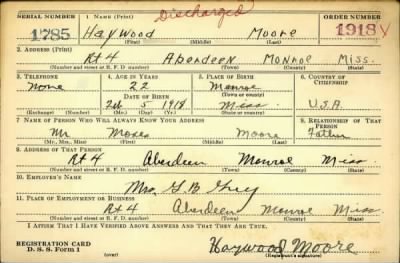 SERIAL NUMBER 1. NAME (Print) Discharged ORDER NUMBER
1785 Haywood Moore 1918
(First) (Middle) (Last)
2. ADDRESS (Print)
Rt 4 Aberdeen Monroe Miss.
(Number and street or R. F. D. number) (Town) (County) (State)
3. TELEPHONE 4. AGE IN YEARS 5. PLACE OF BIRTH 6. COUNTRY OF CITIZENSHIP
None 22 Monroe
DATE OF BIRTH (Town or county)
Feb 5 1918 Miss. U.S.A.
(Exchange) (Number) (Mo.) (Day) (Yr.) (State or country)
7. NAME OF PERSON WHO WILL ALWAYS KNOW YOUR ADDRESS 8. RELATIONSHIP OF THAT PERSON
Mr. Moses Moore Father
(Mr., Mrs., Miss) (First) (Middle) (Last)
9. ADDRESS OF THAT PERSON
Rt 4 Aberdeen Monroe Miss.
(Number and street or R. F. D. number) (Town) (County) (State)
10. EMPLOYER'S NAME
Mrs. G. B.
11. PLACE OF EMPLOYMENT OR BUSINESS
Rt 4 Aberdeen Monroe Miss
(Number and street or R. F. D. number) (Town) (County) (State)
I AFFIRM THAT I HAVE VERIFIED ABOVE ANSWERS AND THAT THEY ARE TRUE.
REGISTRATION CARD
D. S. S. Form 1 Haywood Moore
(over) (Registrant's signature)